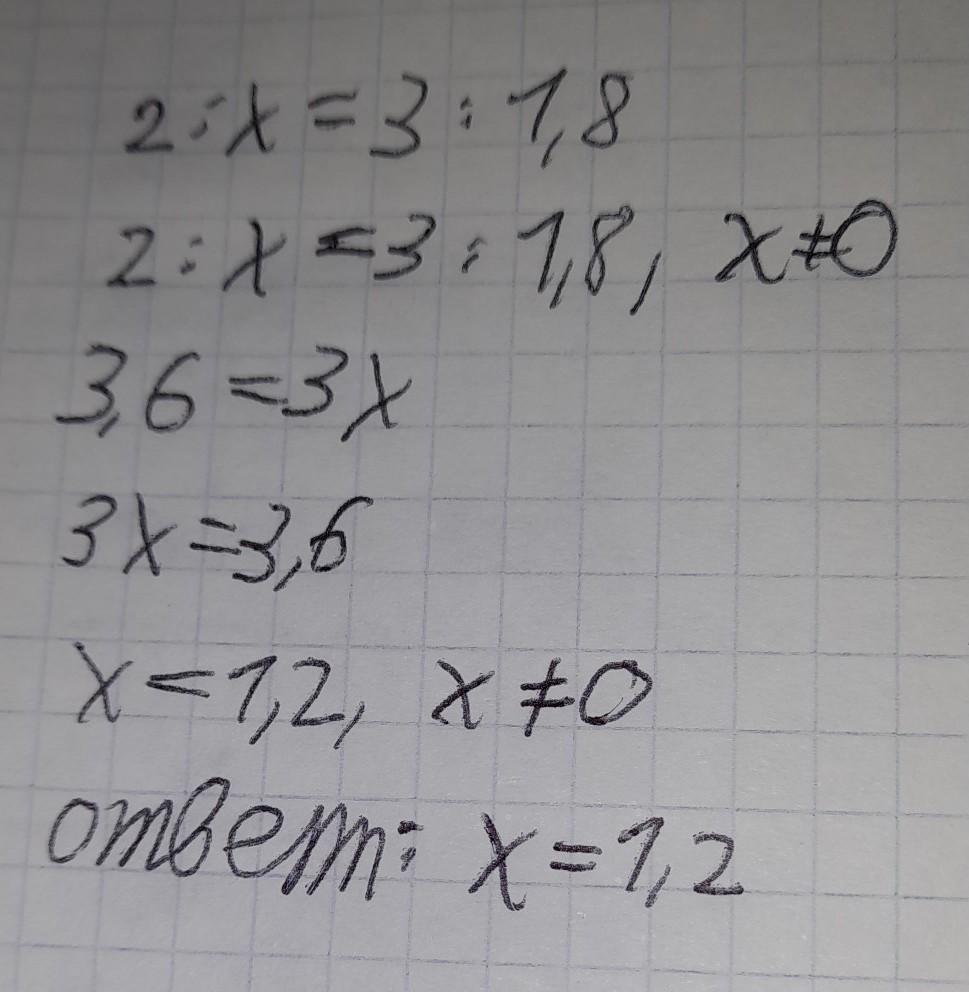 2:x=3:1,8
2:x=3:1,8, x≠0
3,6=3x
3x=3,6
x=1,2, x≠0
ответ: x=1,2